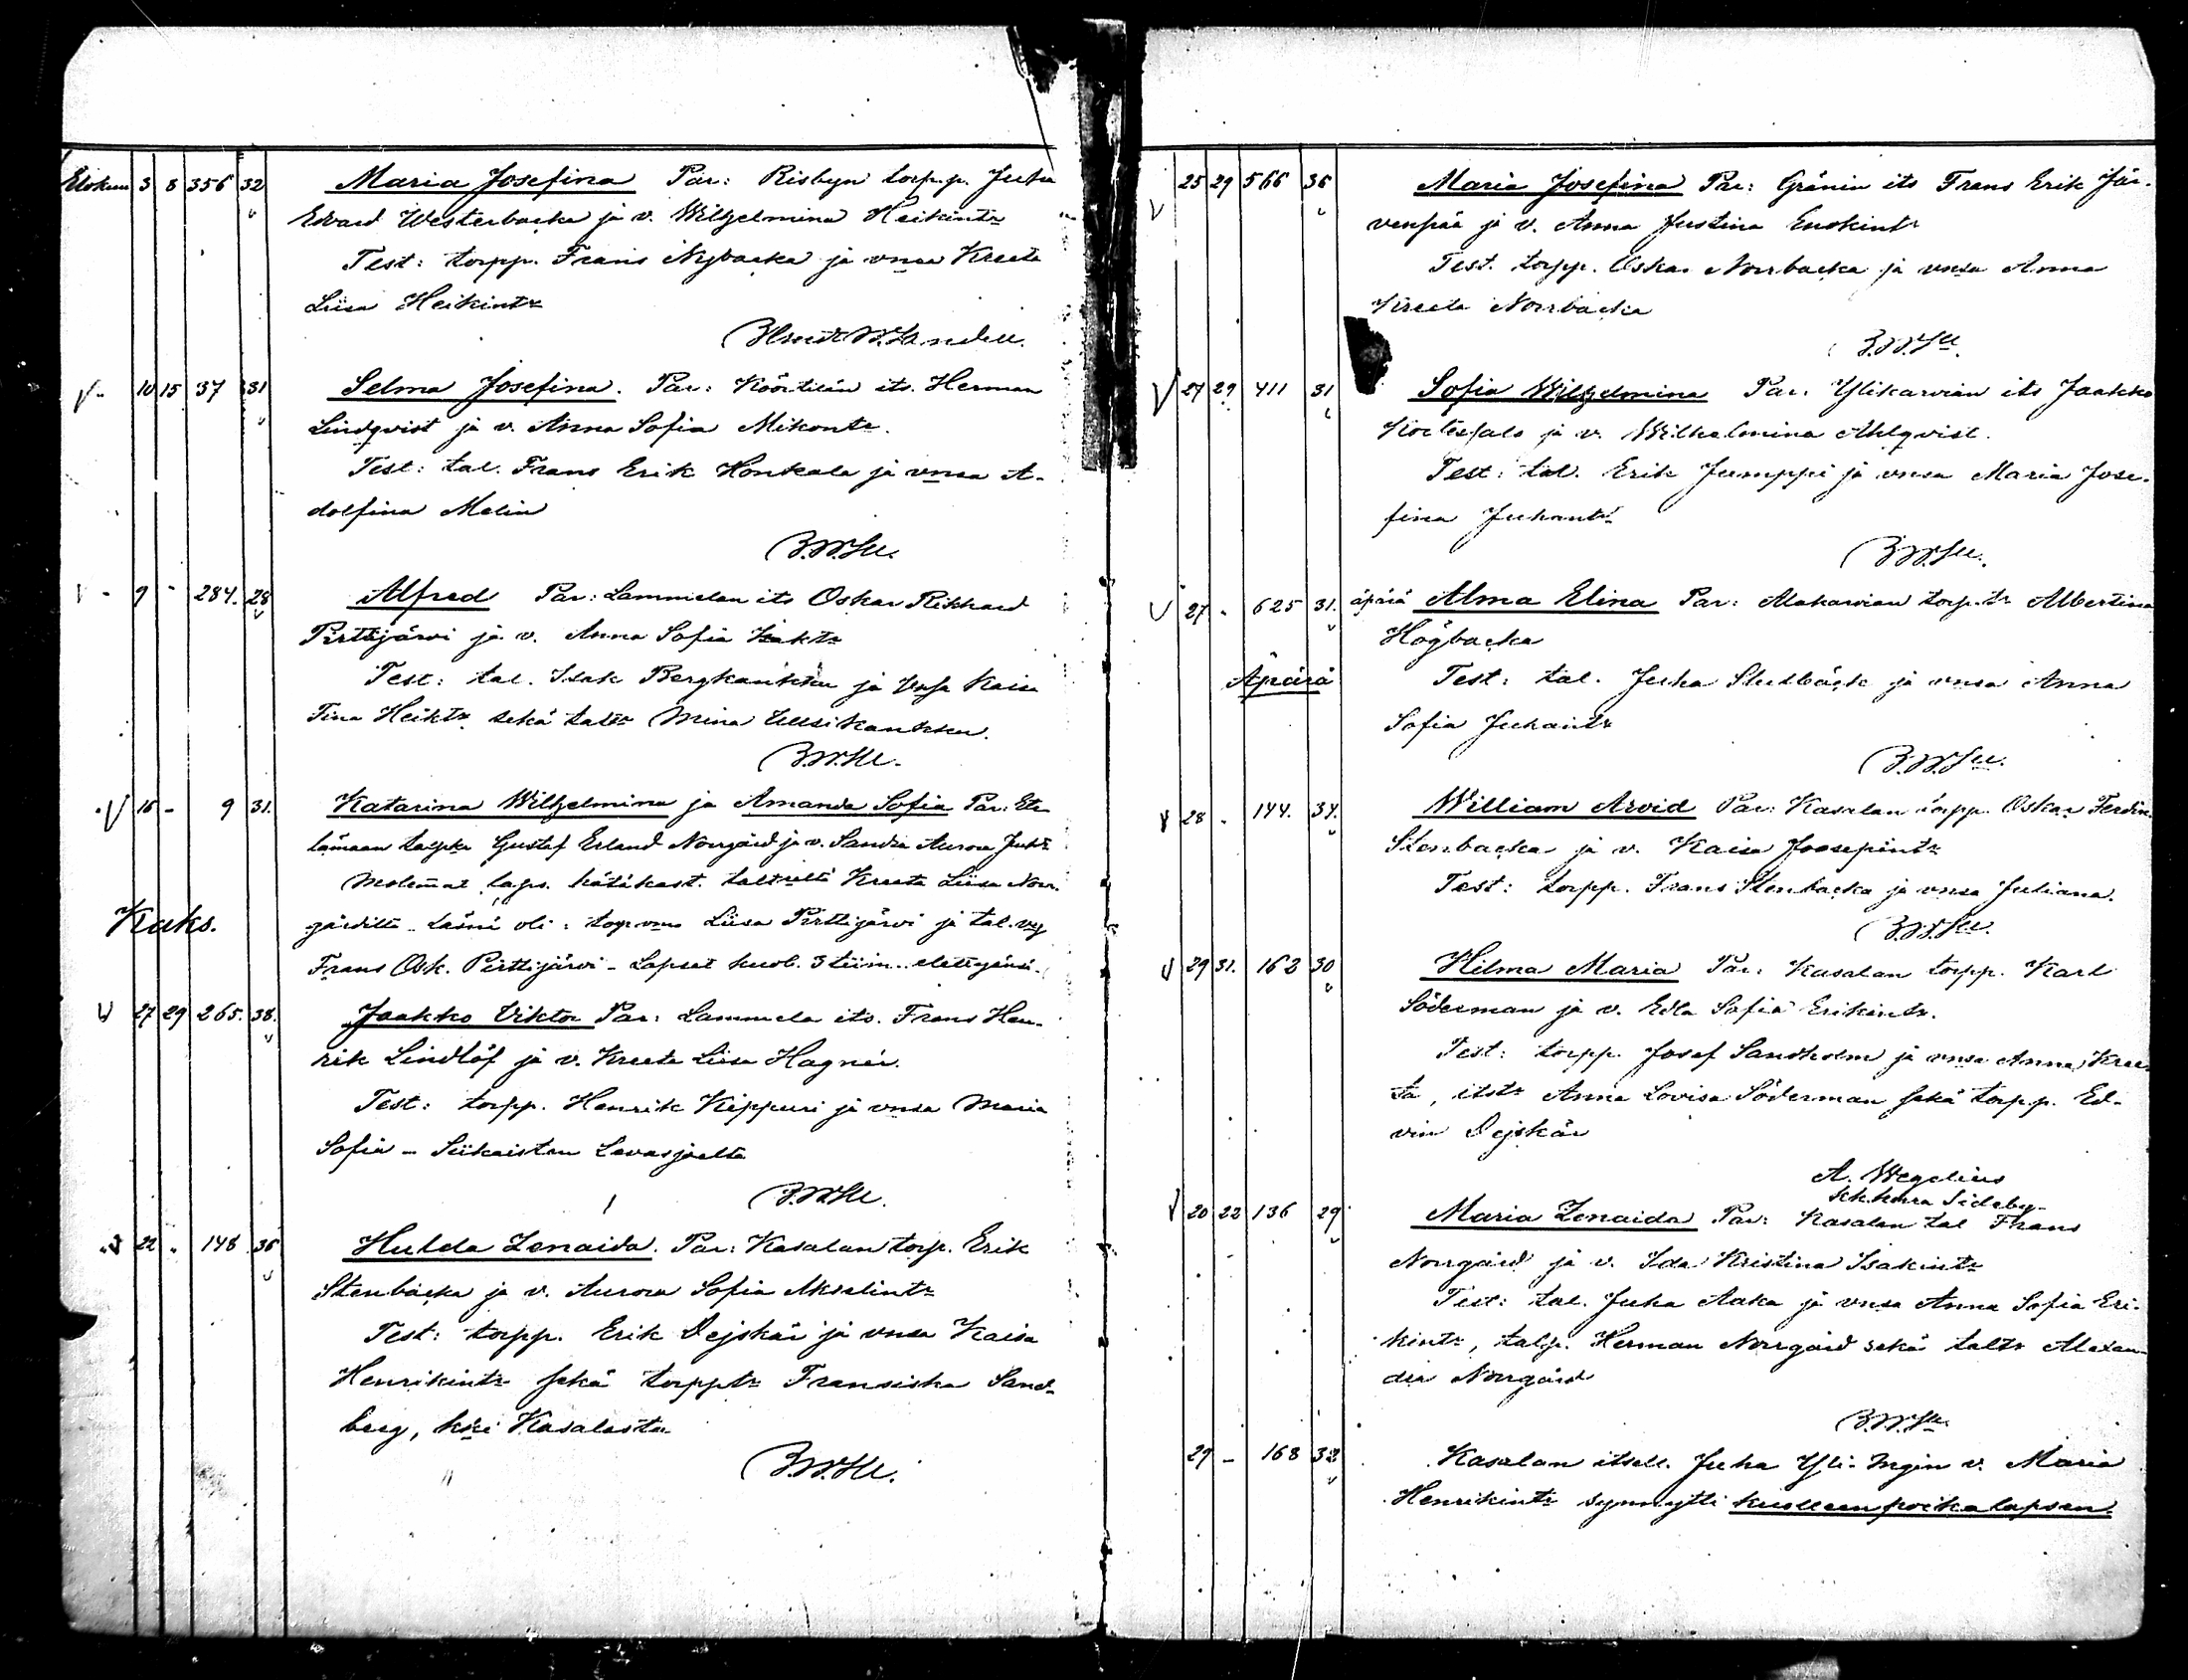 Elokuu 3 8 356 32 Maria Josefina Par: Risbyn torp.p. Juha
Edvard Westerbacka ja v. Wilhelmina Heikintr
Test: torpp. Frans Nybacka ja vnsa Kreeta
Liisa Heikintr
10 15 37 31 Selma Josefina. Par: Köörtilän its. Herman
Lindqvist ja v. Anna Sofia Mikontr.
Test: tal. Frans Erik Honkala ja vnsa A-
dolfina Malin
9 - 284. 28 Alfred Par: Lammelan its Oskar Rikhard
Pirttijärvi ja v. Anna Sofia Isaktr
Test: tal. Isak Bergkaukku ja vnsa Kaisa
Tina Heiktr sekä taltr Mina
16 - 9 31. Katarina Wilhelmina ja Amanda Sofia Par: Ete
lämaan Gustaf Erland Norrgård ja v. Sandra Aurora Juhtr
Molemmat laps. hätäkast. Kreeta Liisa Norr-
Kaks. gårdilta. Läsnä oli: Liisa Pirttijärvi ja tal.
Frans Osk. Pirttijärvi - Lapset kuol. 3 tiim.
27 29 265. 38. Jaakko Viktor Par: Lammela its. Frans Hen-
rik Lindlöf ja v. Kreeta Liisa Hagner.
Test: torpp. Henrik Kippuri ja vnsa Maria
Sofia - Siikaisten Leväsjoelta
22 - 148 36 Hulda Zenaida. Par: Kasalan torp. Erik
Stenbacka ja v. Aurora Sofia Akselintr
Test: torpp. Erik Dejskär ja vnsa Kaisa
Henrikintr sekä torpptr Fransiska Sand-
berg, kki Kasalasta
25 29 566 36 Maria Josefina Par: Gränin its Frans Erik Jär-
venpää ja v. Anna Justina Enokintr
Test. torpp. Oskar Norrbacka ja vnsa Anna
Kreeta Norrbacka
27 29 411 31 Sofia Wilhelmina Par: Ylikarvian its Jaakko
ja v. Wilhelmina Ahlqvist.
Test: tal. Erik Jumppi ja vnsa Maria Jose-
fina Juhantr
27 - 625 31. äpärä Alma Elina Par: Alakarvian torp.tr Albertina
Högbacka
Äpärä Test: tal. Juha ja vnsa Anna
Sofia Juhantr
28 - 144. 34. William Arvid Par: Kasalan torpp. Oskar Ferdin.
Stenbacka ja v. Kaisa Joosepintr
Test: torpp. Frans Stenbacka ja vnsa Juliana.
29 31. 162 30 Hilma Maria Par: Kasalan torpp. Karl
Söderman ja v. Edla Sofia Erikintr.
Test: torpp. Josef Sandholm ja vnsa Anna Kree-
ta, itstr Anna Lovisa Söderman sekä torp.p. Ed-
vin Dejskär
A. Wegelius
Sideby
20 22 136 29 Maria Zenaida Par: Kasalan tal Frans
Norrgård ja v. Ida Kristina Isakintr
Test: tal. Juha Aaka ja vnsa Anna Sofia Eri-
kintr, talp. Herman Norrgård sekä taltr Alexan-
der Norrgård
29 - 168 32 Kasalan itsell. Juha Yli-Ingin v. Maria
Henrikintr synnytti kuolleen poika lapsen.